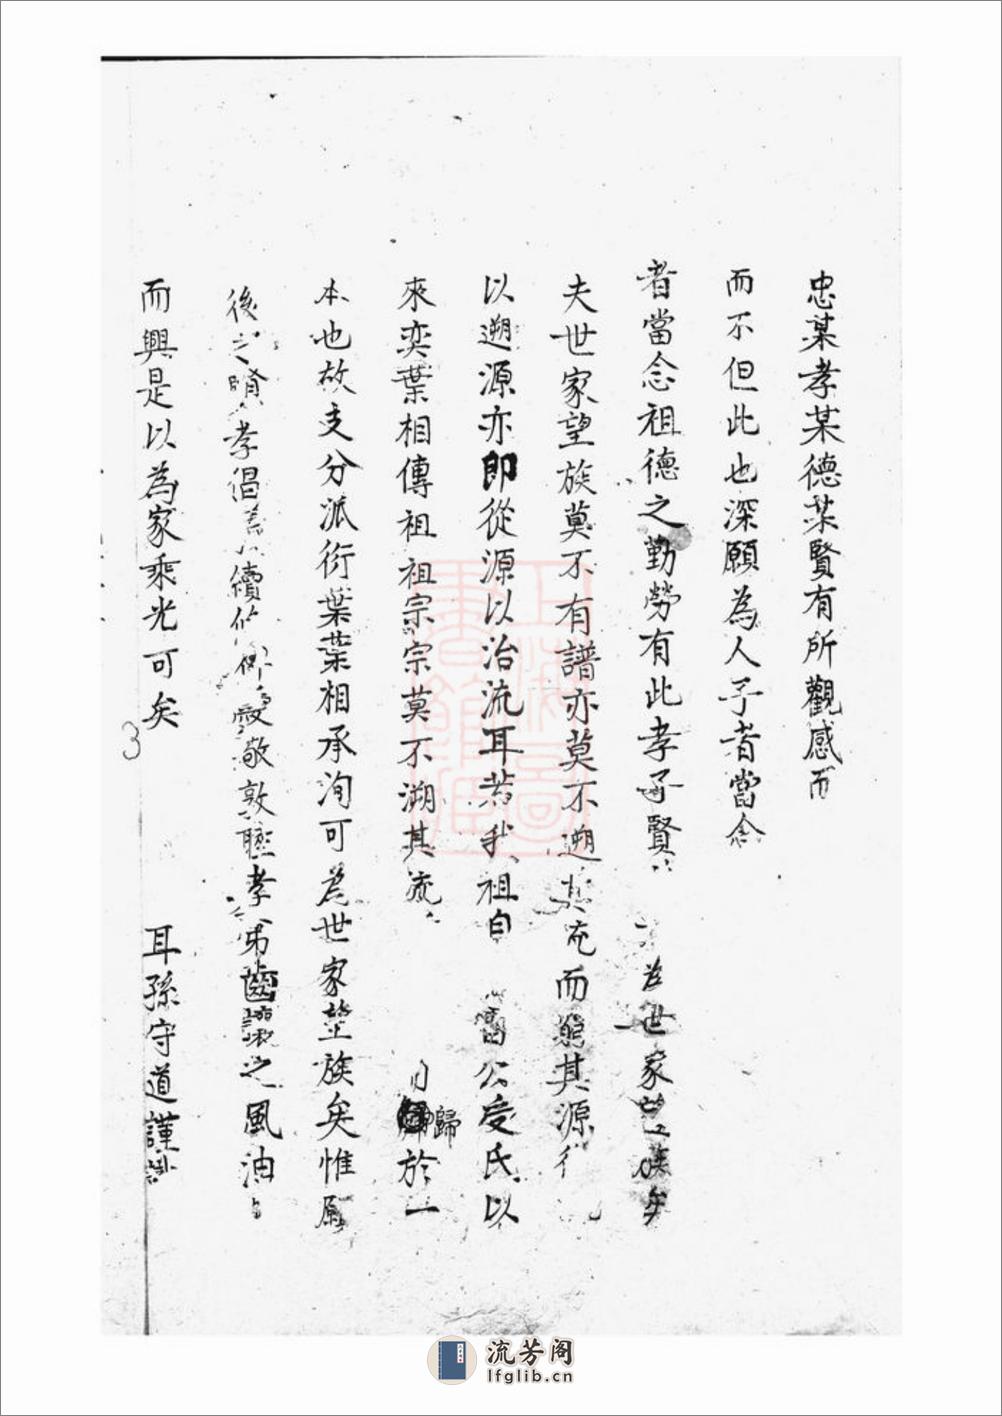 忠某孝某德某賢有所觀感而
而不但此也深願為人子者當念
者當念祖德之勤勞有此孝子賢 為世家望族矣
夫世家望族莫不有譜亦莫不遡其流而窮其源
以遡源亦即從源以治流耳若我祖自 公受氏以
來奕葉相傳祖祖宗宗莫不溯其流 歸於一
本也故支分派衍葉葉相承洵可為世家望族矣惟願
後之 孝倡 續 愛敬敦 孝弟齒讓之風油
而興是以為家乘光可矣
耳孫守道謹
3
上海圖書館藏
流芳阁
lfglib.cn